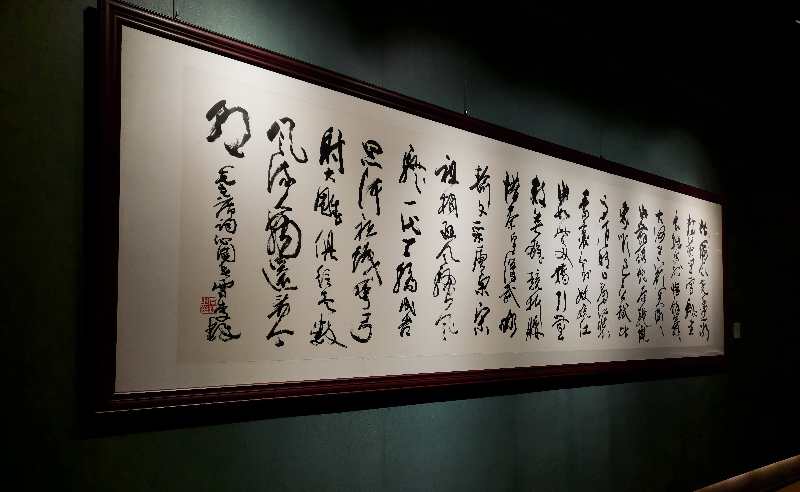 北國風光千里冰
封萬里雪飄望
長城內外惟餘莽莽
大河上下頓失滔滔
山舞銀蛇原馳蠟
象欲與天公試比
高須晴日看紅裝
素裹分外妖嬈江
山如此多嬌引無
數英雄競折腰
惜秦皇漢武略
輸文采唐宗宋
祖稍遜風
騷一代天驕成吉
思汗只識彎弓
射大雕俱往矣數
風流人物還看今
朝
毛主席詞沁園春雪